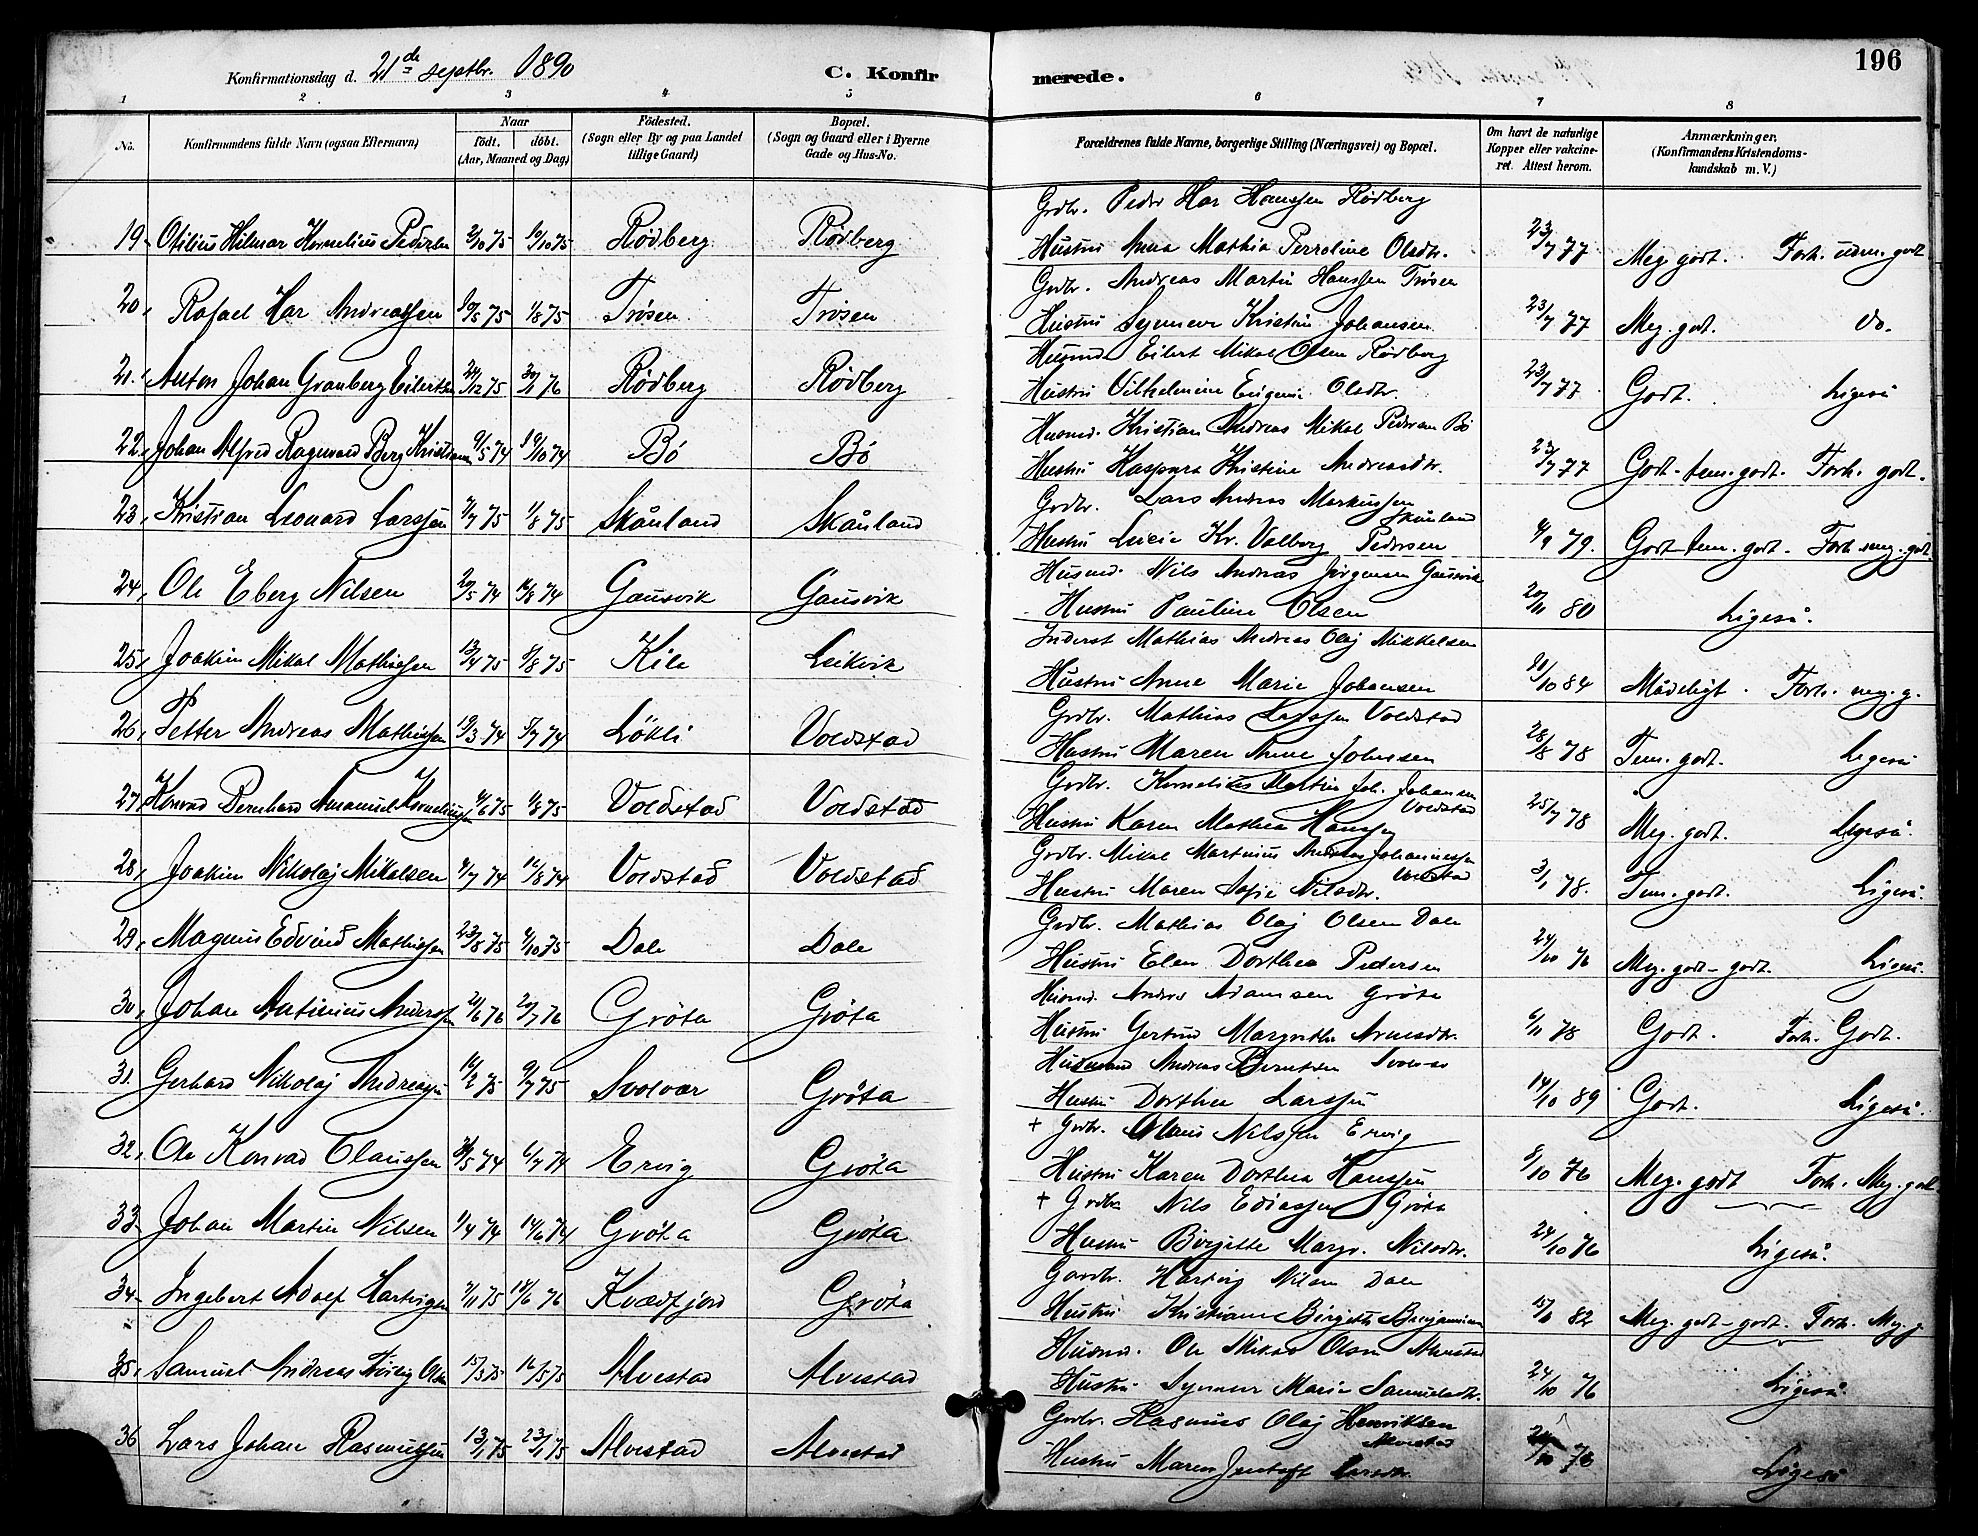 196
Konfirmationsdag d. 21de septbr. 1890 C. Konfirmerede.
1 2 3 4 5 6 7 8
No. Konfirmandens fulde Navn (ogsaa Efternavn) Naar født. døbt. (Aar, Maaned og Dag) Födested. (Sogn eller By og paa Landet tillige Gaard) Bopæl. (Sogn og Gaard eller i Byerne Gade og Hus-No. Forældrenes fulde Navne, borgerlige Stilling (Næringsvei) og Bopæl. Om havt de naturlige Kopper eller vakcineret. Attest herom. Anmærkninger. (Konfirmandens Kristendomskundskab m. V.)
Grdbr. Peder Har Hanssen Rödberg
19 Otilius Hilmar Kornelius Pedersen 2/10 75 10/10 75 Rödberg Rödberg Hustru Anna Mathia Perroline Olsdtr. 23/7 77 Meg. godt. Forh. udm. godt
Grdbr. Andreas Martin Hanssen Trösen
20, Rafael Har Andreassen 30/5 75 1/8 75 Trösen Trösen Hustru Synneve Kristin Johansen 23/7 77 Meg. godt. do.
Husmd Eilert Mikal Olsen Rödberg
21. Anton Johan Granberg Eilertsen 24/12 75 30/1 76 Rödberg Rödberg Hustru Vilhelmine Eugenie Olsdtr. 23/7 77 Godt. Ligeså
Husmd. Kristian Andreas Mikal Pedersen Bö
22, Johan Alfred Ragnvard Berg Kristiansen 9/5 74 9/10 74 Bö Bö Hustru Kaspara Kristine Andreasdtr. 23/7 77 Godt - tem. godt. Forh. godt.
Grdbr. Lars Andreas Markussen Skånland
23, Kristian Leonard Larssen 7/7 75 1/8 75 Skånland Skånland Hustru Lucia Kr. Valborg Pedersen 4/9 79. Godt - tem. godt. Forh. meg. godt.
Husmd. Nils Andreas Jörgensen Gausvik
24, Ole Eberg Nilsen 29/5 74 16/8 74 Gausvik Gausvik Hustru Pauline Olsen 20/11 80 Ligeså.
Inderst Mathias Andreas Olaj Mikkelsen
25, Joakim Mikal Mathiassen 13/4 75 8/8 75 Kile Leikvik Hustru Anne Marie Johansen 30/10 84 Mådeligt. Forh. meg. g.
Grdbr. Mathias Larssen Voldstad
26, Petter Andreas Mathiassen 19/3 74 5/7 74 Lökli Voldstad Hustru Maren Anne Johnsen 28/8 78 Tem. godt. Ligeså
Grdbr. Kornelius Martin Joh. Johansen Voldstad
27, Konrad Bernhard Amanuel Korneliussen 4/6 75 1/8 75 Voldstad Voldstad Hustru Karen Mathea Hanssen 25/7 78 Meg. godt. Ligeså.
Grdbr. Mikal Martinus Andreas Johannessen Voldstad
28, Joakim Nikolaj Mikalsen 4/7 74 16/8 74 Voldstad Voldstad Hustru Maren Sofie Nilsdtr. 3/1 78. Tem. godt. Ligeså.
Grdbr. Mathias Olaj Olsen Dale
29, Magnus Edvind Mathiassen 23/8 75 4/10 75 Dale Dale Hustru Elen Dorthea Pedersen 24/10 76 Meg. godt - godt. Ligeså.
Husmd. Anders Adamsen Gröta
30, Johan Antinius Anderssen 21/6 76 20/7 76 Gröta Gröta Hustru Gertrud Margrethe Arnesdtr. 6/11 78 Godt. Forh. Godt.
Husmand Andreas Berntsen Svolvær
31. Gerhard Nikolaj Andreassen 19/2 75 9/7 75 Svolvær Gröta Hustru Dorthea Larssen 14/10 89 Godt. Ligeså.
+ Grdbr. Klaus Nilssen Ervig
32, Ole Konrad Claussen 31/5 74 6/7 74 Ervig Gröta Hustru Karen Dorthea Hanssen 8/10 76 Meg. godt Forh. Meg. godt
+ Grdbr. Nils Ediassen Gröta
33 Johan Martin Nilsen 1/4 74 14/6 74 Gröta Gröta Hustru Birgitte Margr. Nilsdtr. 24/10 76 Ligeså.
Gardbr. Hartvig Nilsen Dale
34 Ingebert Adolf Hartvigsen 7/11 75 18/6 76 Kvædfjord Gröta Hustru Kristiane Birgitte Benjaminsen 15/11 82 Meg. godt - godt. Forh. Meg. g.
Husmd. Ole Mikal Olsen Alvestad
35, Samuel Andreas Olsen 15/3 75 16/5 75 Alvestad Alvestad Hustru Synneve Marie Samuelsdtr. 24/10 76 Ligeså
Grdbr. Rasmus Olaj Henriksen Alvestad
36 Lars Johan Rasmussen 13/1 75 23/1 75 Alvestad Alvestad Hustru Maren Larsdtr. 24/10 76 Ligeså